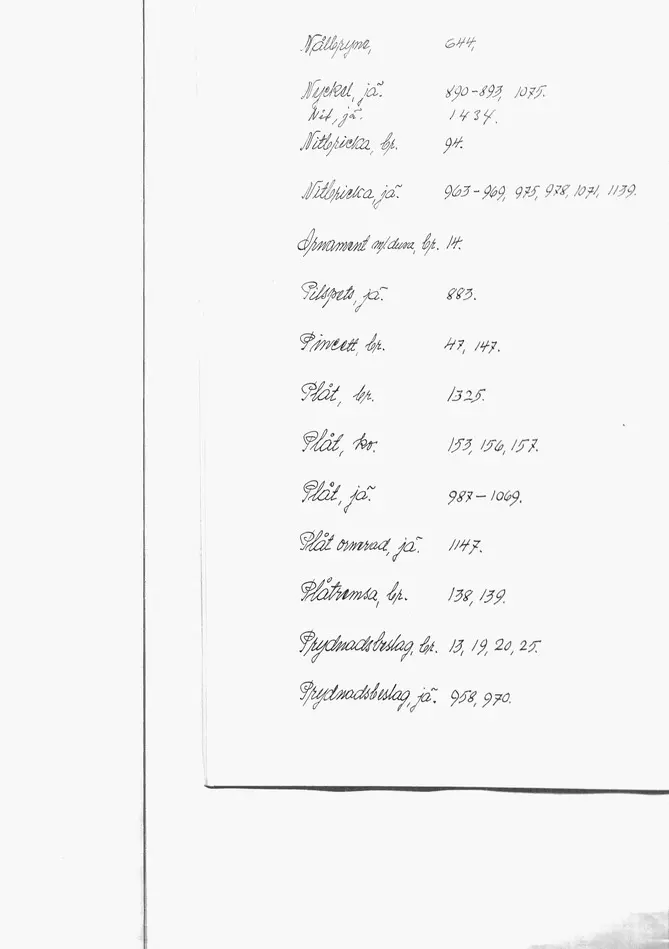 Nålbryne, 644,
Nyckel, jä. 890-893, 1075.
Nit, jä. 1434.
Nitbricka, br. 94.
Nitbricka, jä. 963-969, 975, 978, 1071, 1139.
Ornament m/duva, br. 14.
Pilspets, jä. 883.
Pincett, br. 47, 147.
Plåt, br. 1325.
Plåt, ko. 153, 156, 157.
Plåt, jä. 987-1069.
Plåt ornerad, jä. 1147.
Plåtremsa, br. 138, 139.
Prydnadsbeslag, br. 13, 19, 20, 25.
Prydnadsbeslag, jä. 958, 970.